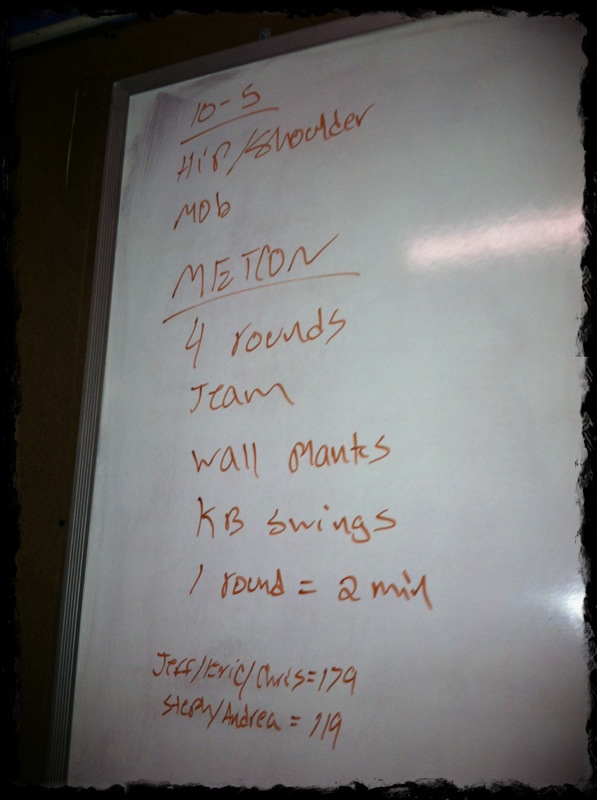 10-5
Hip/Shoulder
Mob
METCON
4 rounds
Team
wall planks
KB swings
1 round = 2 min
Jeff/Eric/Chris=179
Steph/Andrea = 119